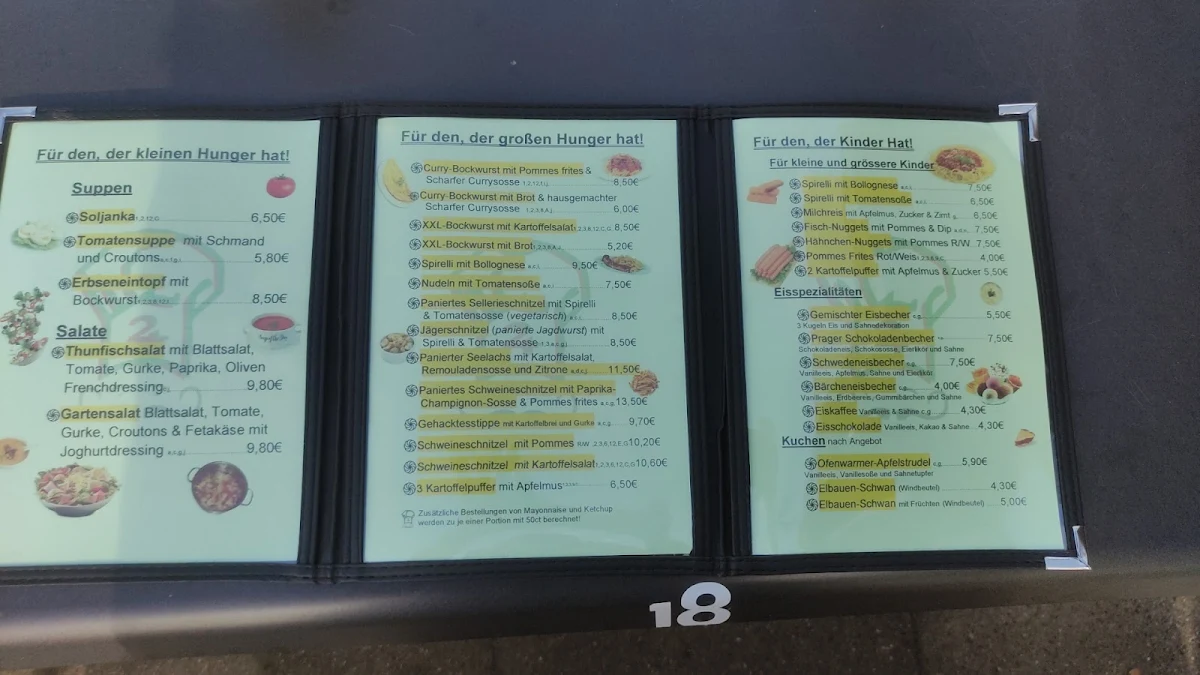 Für den, der kleinen Hunger hat!
Suppen
Soljanka 6,50€
Tomatensuppe mit Schmand
und Croutons 5,80€
Erbseneintopf mit
Bockwurst 8,50€
Salate
Thunfischsalat mit Blattsalat,
Tomate, Gurke, Paprika, Oliven
Frenchdressing 9,80€
Gartensalat Blattsalat, Tomate,
Gurke, Croutons & Fetakäse mit
Joghurtdressing 9,80€
Für den, der großen Hunger hat!
Curry-Bockwurst mit Pommes frites &
Scharfer Currysosse 8,50€
Curry-Bockwurst mit Brot & hausgemachter
Scharfer Currysosse 6,00€
XXL-Bockwurst mit Kartoffelsalat 8,50€
XXL-Bockwurst mit Brot 5,20€
Spirelli mit Bollognese 9,50€
Nudeln mit Tomatensoße 7,50€
Paniertes Sellerieschnitzel mit Spirelli
& Tomatensosse (vegetarisch) 8,50€
Jägerschnitzel (panierte Jagdwurst) mit
Spirelli & Tomatensosse 8,50€
Panierter Seelachs mit Kartoffelsalat,
Remouladensosse und Zitrone 11,50€
Paniertes Schweineschnitzel mit Paprika-
Champignon-Sosse & Pommes frites 13,50€
Gehacktesstippe mit Kartoffelbrei und Gurke 9,70€
Schweineschnitzel mit Pommes R/W 10,20€
Schweineschnitzel mit Kartoffelsalat 10,60€
3 Kartoffelpuffer mit Apfelmus 6,50€
Zusätzliche Bestellungen von Mayonnaise und Ketchup
werden zu je einer Portion mit 50ct berechnet!
Für den, der Kinder Hat!
Für kleine und grössere Kinder
Spirelli mit Bollognese 7,50€
Spirelli mit Tomatensoße 6,50€
Milchreis mit Apfelmus, Zucker & Zimt 6,50€
Fisch-Nuggets mit Pommes & Dip 7,50€
Hähnchen-Nuggets mit Pommes R/W 7,50€
Pommes Frites Rot/Weis 4,00€
2 Kartoffelpuffer mit Apfelmus & Zucker 5,50€
Eisspezialitäten
Gemischter Eisbecher 5,50€
3 Kugeln Eis und Sahnedekoration
Prager Schokoladenbecher 7,50€
Schokoladeneis, Schokososse, Eierlikör und Sahne
Schwedeneisbecher 7,50€
Vanilleeis, Apfelmus, Sahne und Eierlikör
Bärcheneisbecher 4,00€
Vanilleeis, Erdbeereis, Gummibärchen und Sahne
Eiskaffee Vanilleeis & Sahne 4,30€
Eisschokolade Vanilleeis, Kakao & Sahne 4,30€
Kuchen nach Angebot
Ofenwarmer-Apfelstrudel 5,90€
Vanilleeis, Vanillesoße und Sahnetupfer
Elbauen-Schwan (Windbeutel) 4,30€
Elbauen-Schwan mit Früchten (Windbeutel) 5,00€
18